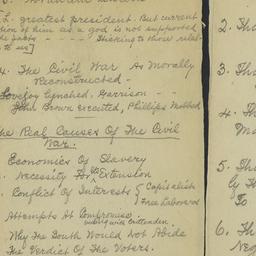 L. greatest president. But current
of him as a god is not supported
by facts - - - Thinking to those relat-
to us]
4. The Civil War As Morally
Reconstructed -
Lovejoy Lynched. Garrison - -
John Brown executed, Phillips Mobbed
The Real Causes Of The Civil
War.
Economics Of Slavery
Necessity For Its Extension
Conflict Of Interests { Capitalists
Free Laborers
Attempts At Compromise
ending with Crittenden
Why The South Would Not Abide
The Verdict Of The Voters.
2. Tho
3. Tho
4. Th
Mo
5. Th
by Th
To
6. Th
Neg